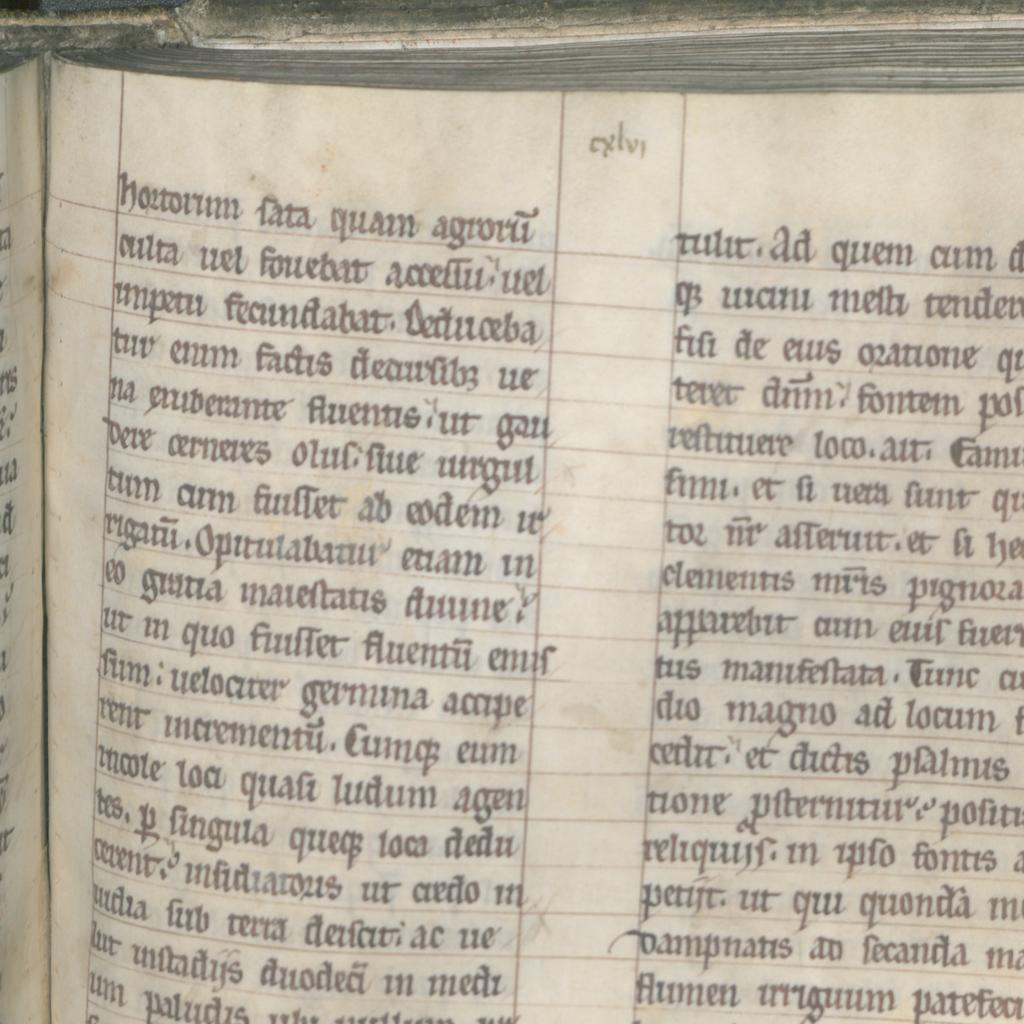 cxlvi
hortorum sata quam agrorū
culta uel fouebat accessu; uel
impetu fecundabat. Deduceba
tur enim factis decursibꝫ ue
na exuberante fluentis; ut gau
dere cerneres olus; siue uirgul
tum cum fuisset ab eodem ir
rigatū. Opitulabatur etiam in
eo gratia maiestatis diuine;
ut in quo fuisset fluentū emis
sum; uelociter germina accipe
rent incrementū. Cumqꝫ eum
incole loci quasi ludum agen
tes, ꝑ singula queqꝫ loca dedu
cerent; insidiatoris ut credo in
uidia sub terra desciit; ac ue
lut instadijs duodecī in medi
um paludis ubi
tulit. Ad quem cum
qꝫ uicini mesti tender
fisi de eius oratione qu
teret dn̄m; fontem pos
restituere loco. ait.
simi. et si uera sunt qu
tor nr̄ asseruit. et si he
clementis mr̄is pignora
apparebit cum eius fuer
tus manifestata. Tunc cu
dio magno ad locum
cedit; et dictis psalmis
tione ꝓsternitur; positi
reliquijs. in ipso fontis a
petijt. ut qui quondā
dampnatis ad secanda ma
flumen irriguum patefeci